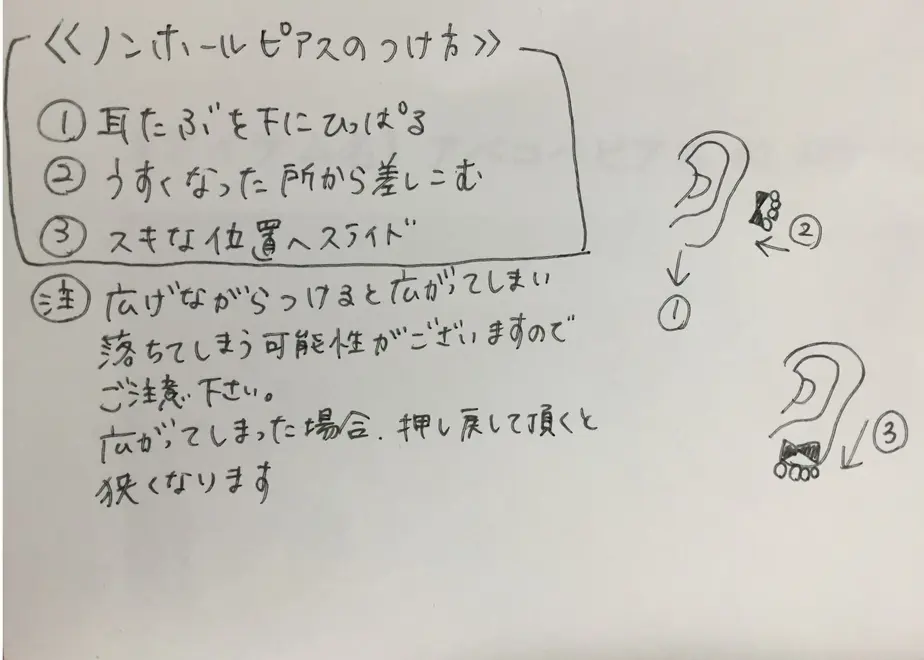 ≪ノンホールピアスのつけ方≫
① 耳たぶを下にひっぱる
② うすくなった所から差しこむ
③ スキな位置へスライド
㊟ 広げながらつけると広がってしまい
落ちてしまう可能性がございますので
ご注意下さい。
広がってしまった場合、押し戻して頂くと
狭くなります
②
①
③